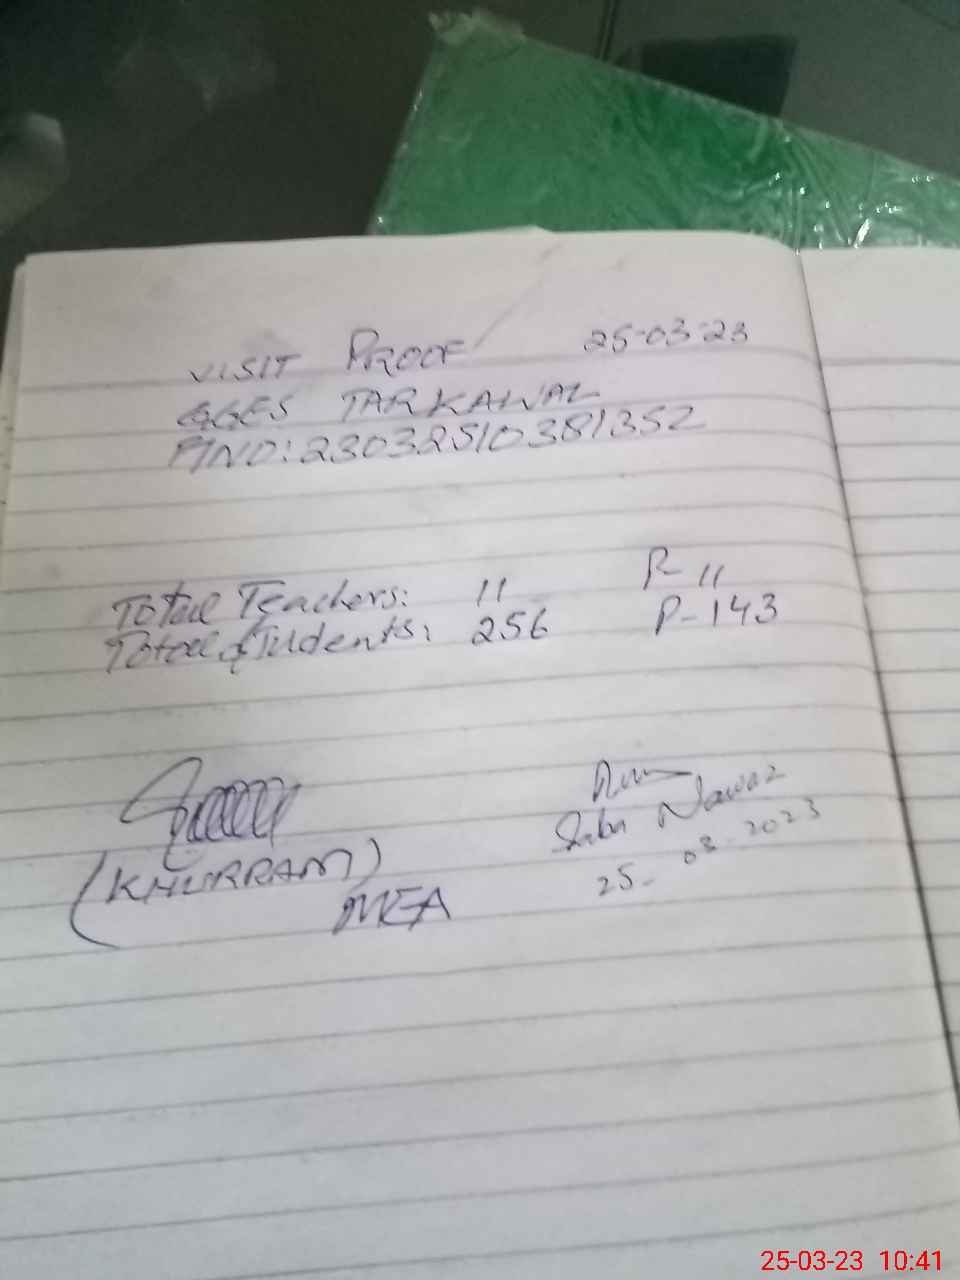 VISIT PROOF 25-03-23
GGES TARKAWAL
P/NO: 23032510381352
Total Teachers: 11 P-11
Total Students: 256 P-143
(KHURRAM)
MEA
Saba Nawaz
25-03-2023
25-03-23 10:41